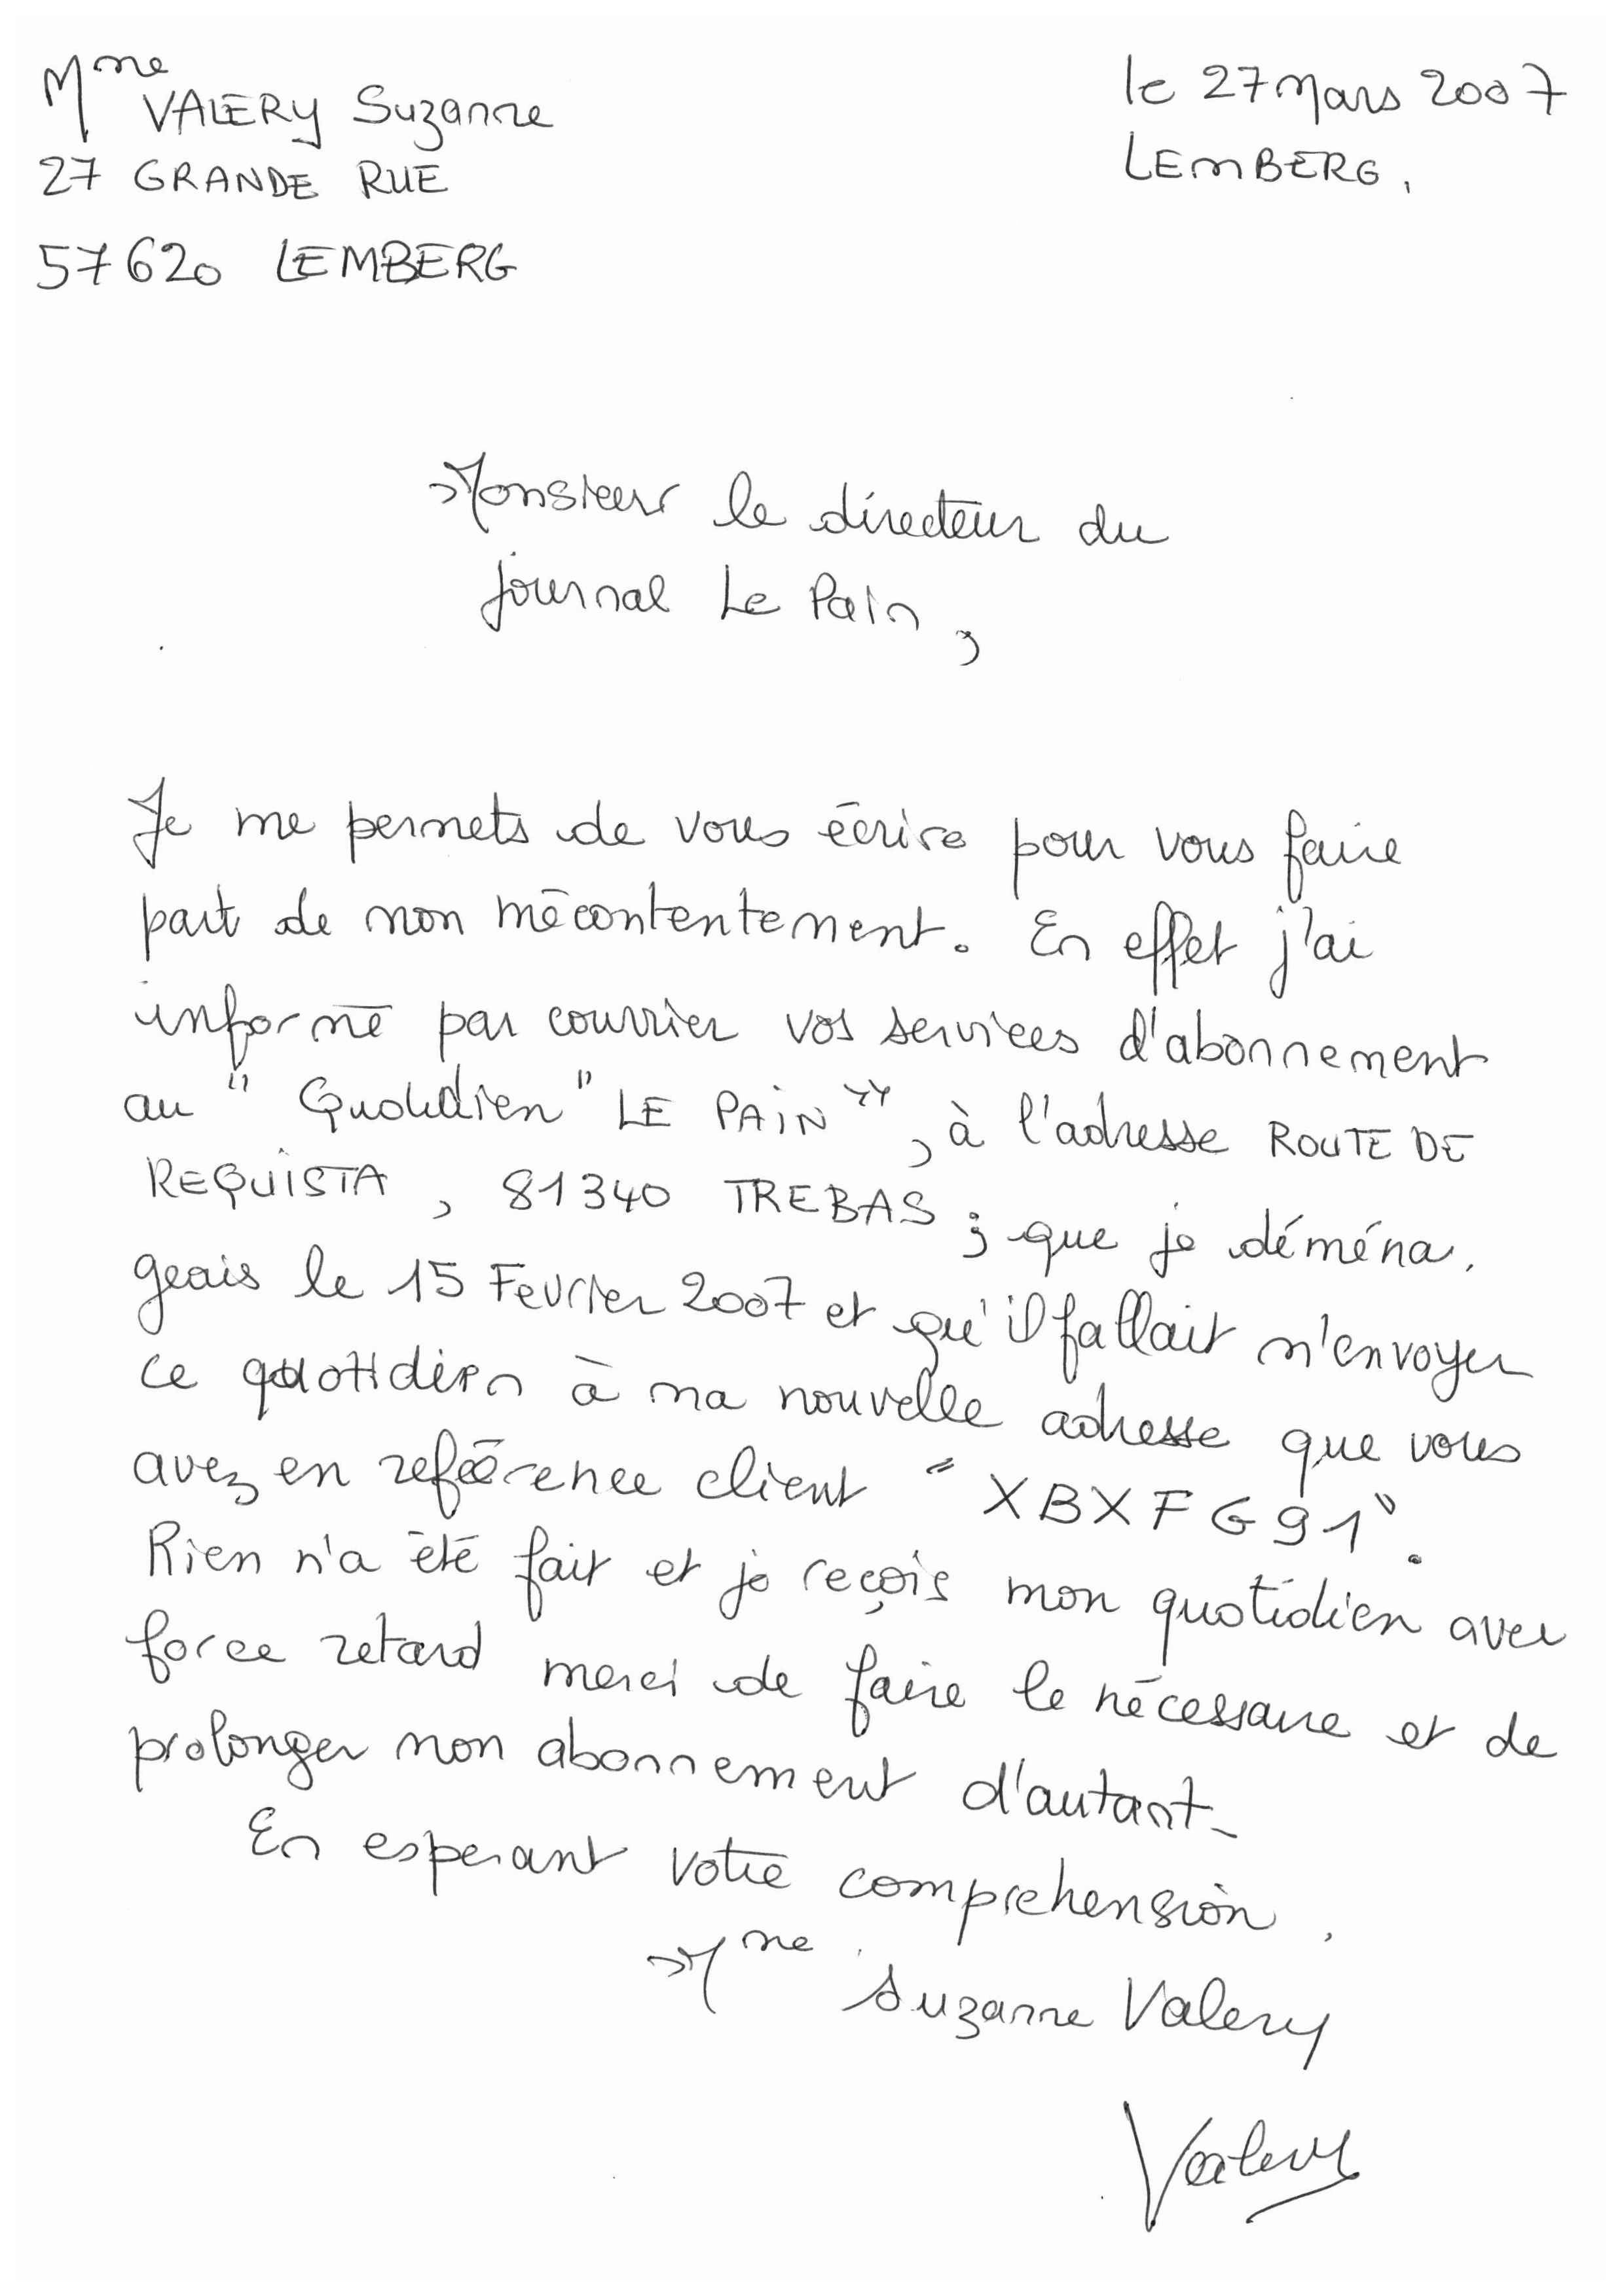 Mme VALERY Suzanne
27 GRANDE RUE
57620 LEMBERG
le 27 Mars 2007
LEMBERG.
Monsieur le directeur du
journal Le Pain,
Je me permets de vous écrire pour vous faire
part de mon mécontentement. En effet j'ai
informé par courrier vos services d'abonnement
au " Quotidien " LE PAIN ", à l'adresse ROUTE DE
REQUISTA, 81340 TREBAS ; que je déména.
geais le 15 Fevrier 2007 et qu'il fallait m'envoyer
ce quotidien à ma nouvelle adresse que vous
avez en reférence client " XBXFG91".
Rien n'a été fait et je reçois mon quotidien avec
force retard merci de faire le nécessaire et de
prolonger mon abonnement d'autant.
En esperant votre comprehension.
Mme Suzanne Valery
Valery